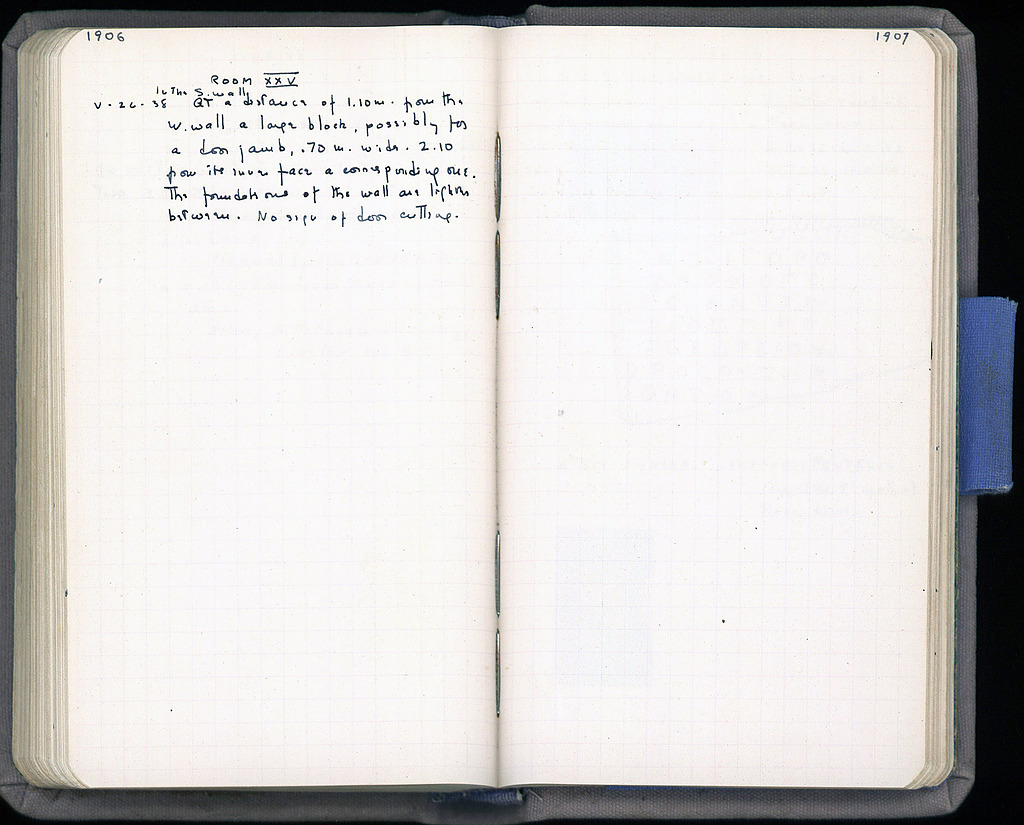 1906
1907
ROOM XXV
In the S. wall
V-26-38 at a distance of 1.10 m. from the
W. wall a large block, possibly for
a door jamb, .70 m. wide. 2.10
from its inner face a corresponding one.
The foundations of the wall are lighter
between. No sign of door cutting.